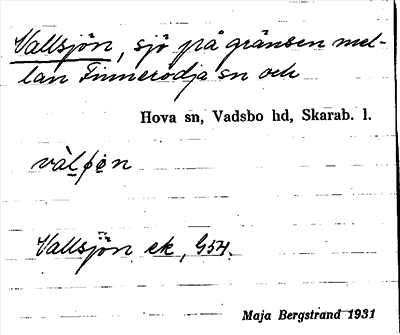 Vallsjön, sjö på gränsen mel-
lan Finnerödja sn och
Hova sn, Vadsbo hd, Skarab. l.
Vallsjön ek, G54.
Maja Bergstrand 1931